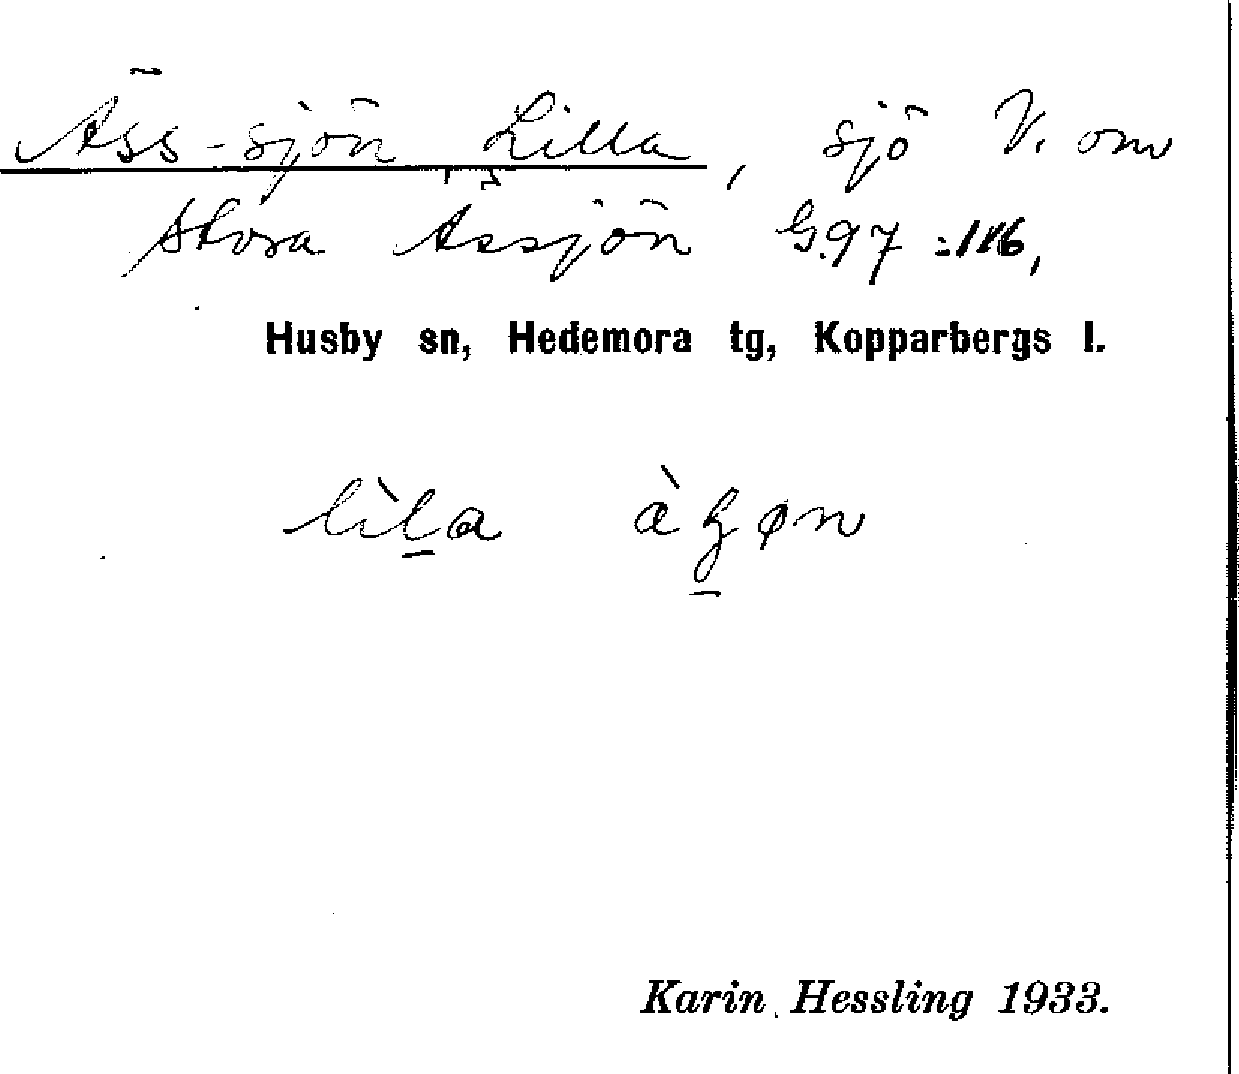 Äss-sjön Lilla, sjö V. om
Stora Ässjön G.97 :116,
Husby sn, Hedemora tg, Kopparbergs l.
lìl̲a
Karin Hessling 1933.